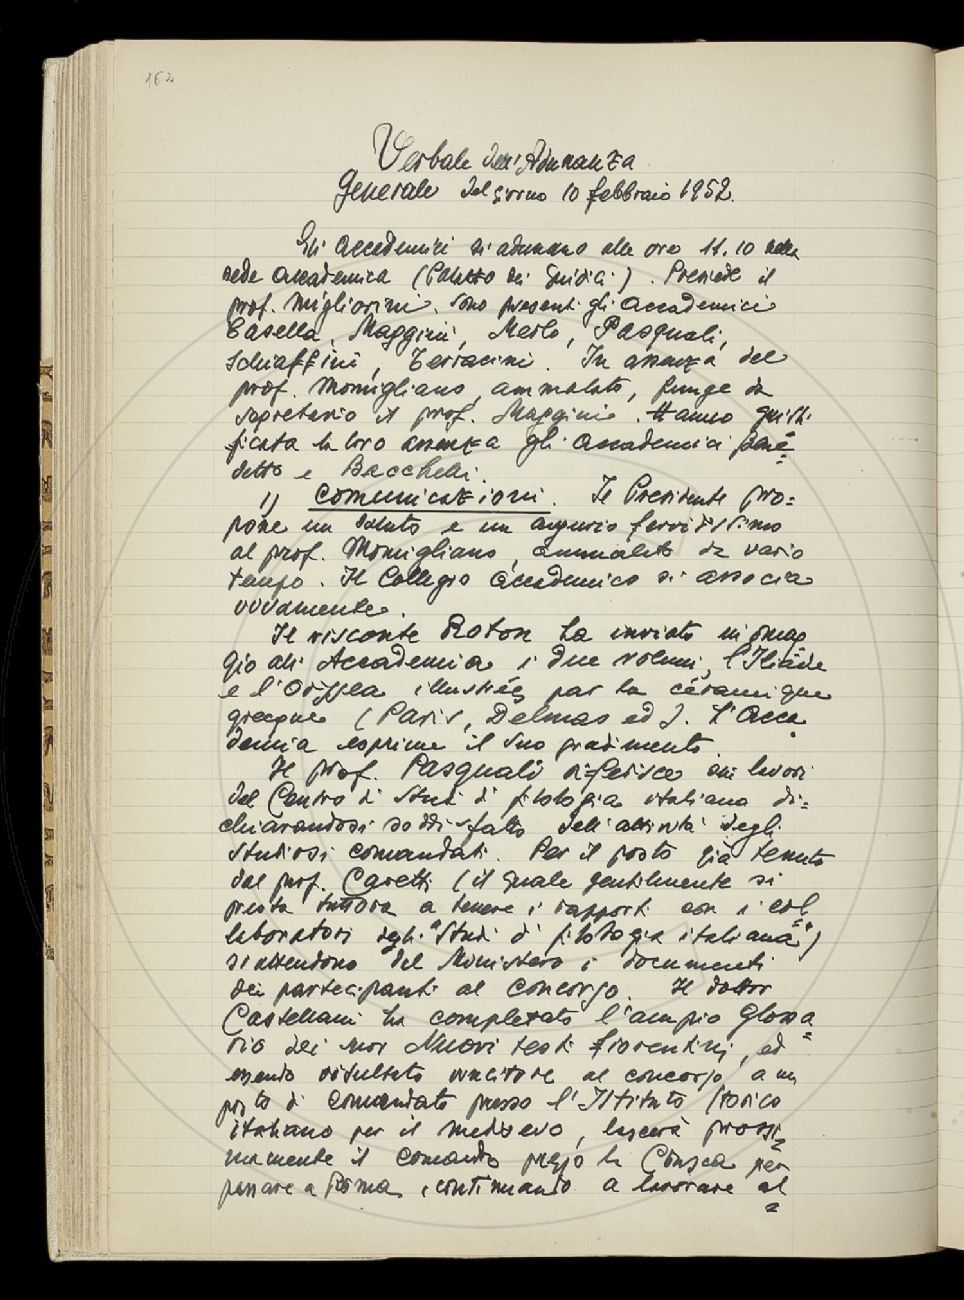 162
Verbale dell'Adunanza
Generale del giorno 10 febbraio 1952.
Gli Accademici si adunano alle ore 11.10 nella
sede Accademica (Palazzo dei Giudici). Presiede il
prof. Migliorini. Sono presenti gli Accademici
Casella, Maggini, Merlo, Pasquali,
Schiaffini, Terracini. In assenza del
prof. Momigliano, ammalato, funge da
segretario il prof. Maggini. Hanno giusti-
ficata la loro assenza gli Accademici Bene=
detto e Bacchelli.
1) Comunicazioni. Il Presidente pro=
pone un saluto e un augurio fervidissimo
al prof. Momigliano, ammalato da vario
tempo. Il Collegio Accademico si associa
vivamente.
Il visconte Roton ha inviato in omag=
gio all'Accademia i due volumi, l'Iliade
e l'Odyssea illustrées par la céramique
grecque (Paris, Delmas ed). L'Acca=
demia esprime il suo gradimento.
Il prof. Pasquali riferisce sui lavori
del Centro di Studi di filologia italiana di=
chiarandosi soddisfatto dell'attività degli
studiosi comandati. Per il posto già tenuto
dal prof. Caretti (il quale gentilmente si
presta tuttora a tenere i rapporti con i col=
laboratori degli "Studi di filologia italiana")
si attendono dal Ministero i documenti
dei partecipanti al concorso. Il dottor
Castellani ha completato l'ampio Glossa=
rio dei suoi Nuovi testi fiorentini, ed
essendo risultato vincitore al concorso a un
posto di comandato presso l'Istituto storico
italiano per il medioevo, lascerà prossi=
mamente il comando presso la Crusca per
passare a Roma, continuando a lavorare al=